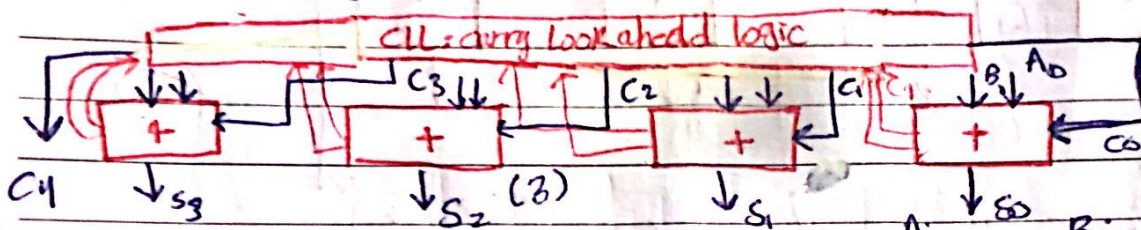 CLL: carry Look ahedd logic
C3 C2 C1 C1 B0 A0
+ + + + C0
C4 S3 S2 (3) S1 S0
A. B.